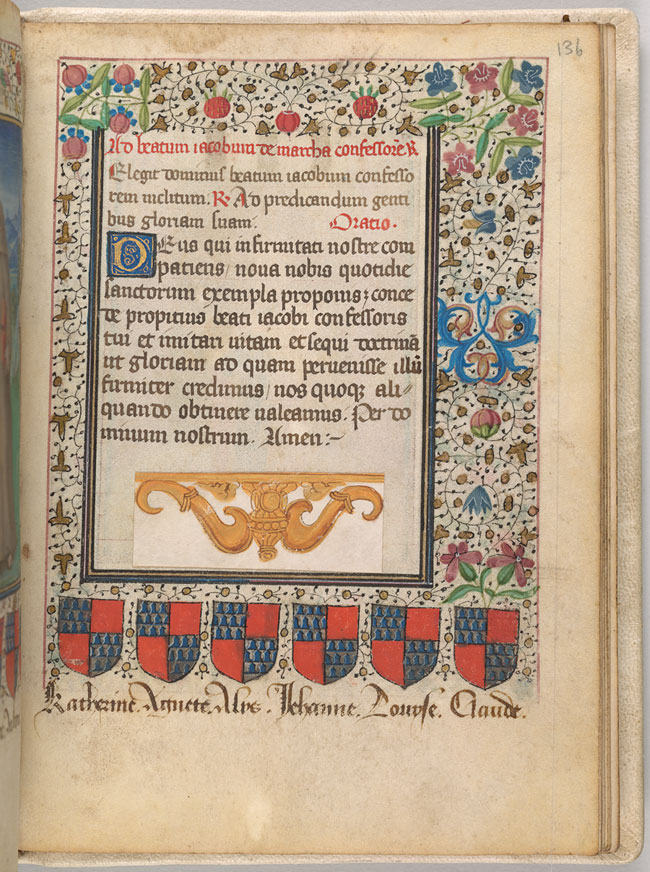 136
Ad beatum iacobum de marcha confessorē R
Elegit dominus beatum iacobum confesso
rem inclitum. R Ad predicandum genti
bus gloriam suam. Oratio.
DEus qui infirmitati nostre com
patiens / noua nobis quotidie
sanctorum exempla proponis; conce
de propitius beati iacobi confessoris
tui et imitari uitam et sequi doctrinā
ut gloriam ad quam peruenisse illū
firmiter credimus / nos quoqꝫ ali
quando obtinere ualeamus. Per do
minum nostrum. Amen :~
Katherine. Agnete. Alys. Jehanne. Louyse. Claude.